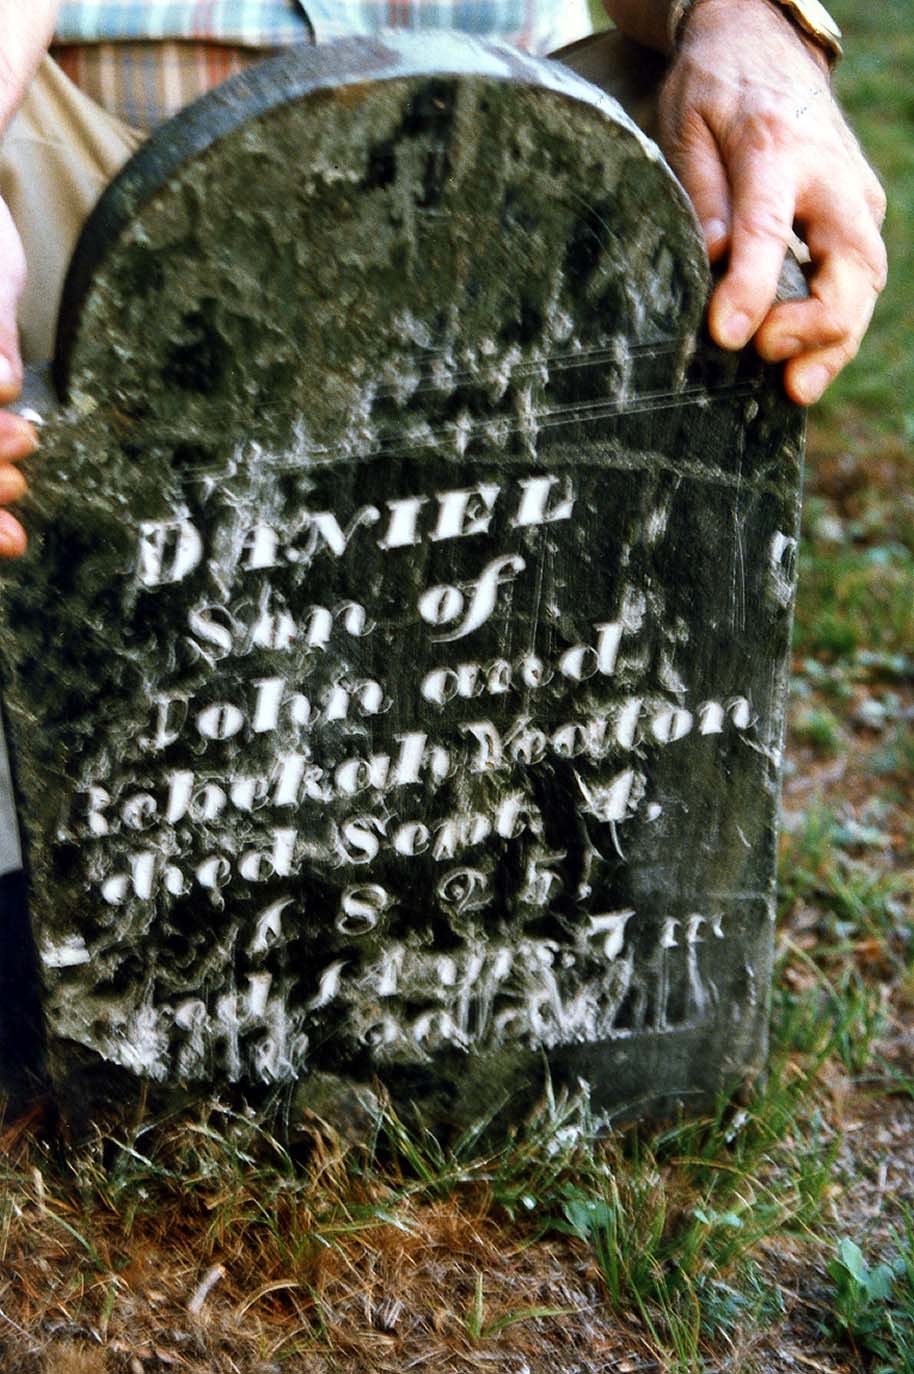 DANIEL
Son of
John and
Rebekah Yeaton
died Sept. 4,
1825,
14 yrs. 7 m